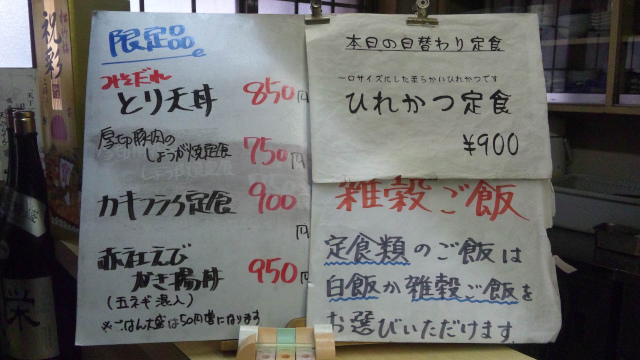 限定品
みそだれ
とり天丼 850円
厚切豚肉の
しょうが焼定食 750円
カキフライ定食 900円
赤エビ
かき揚丼 950円
(玉ネギ混入)
※ごはん大盛は50円増になります
本日の日替わり定食
一口サイズにした柔らかいひれかつです
ひれかつ定食
¥900
雑穀ご飯
定食類のご飯は
白飯か雑穀ご飯を
お選びいただけます
祝彩
栄